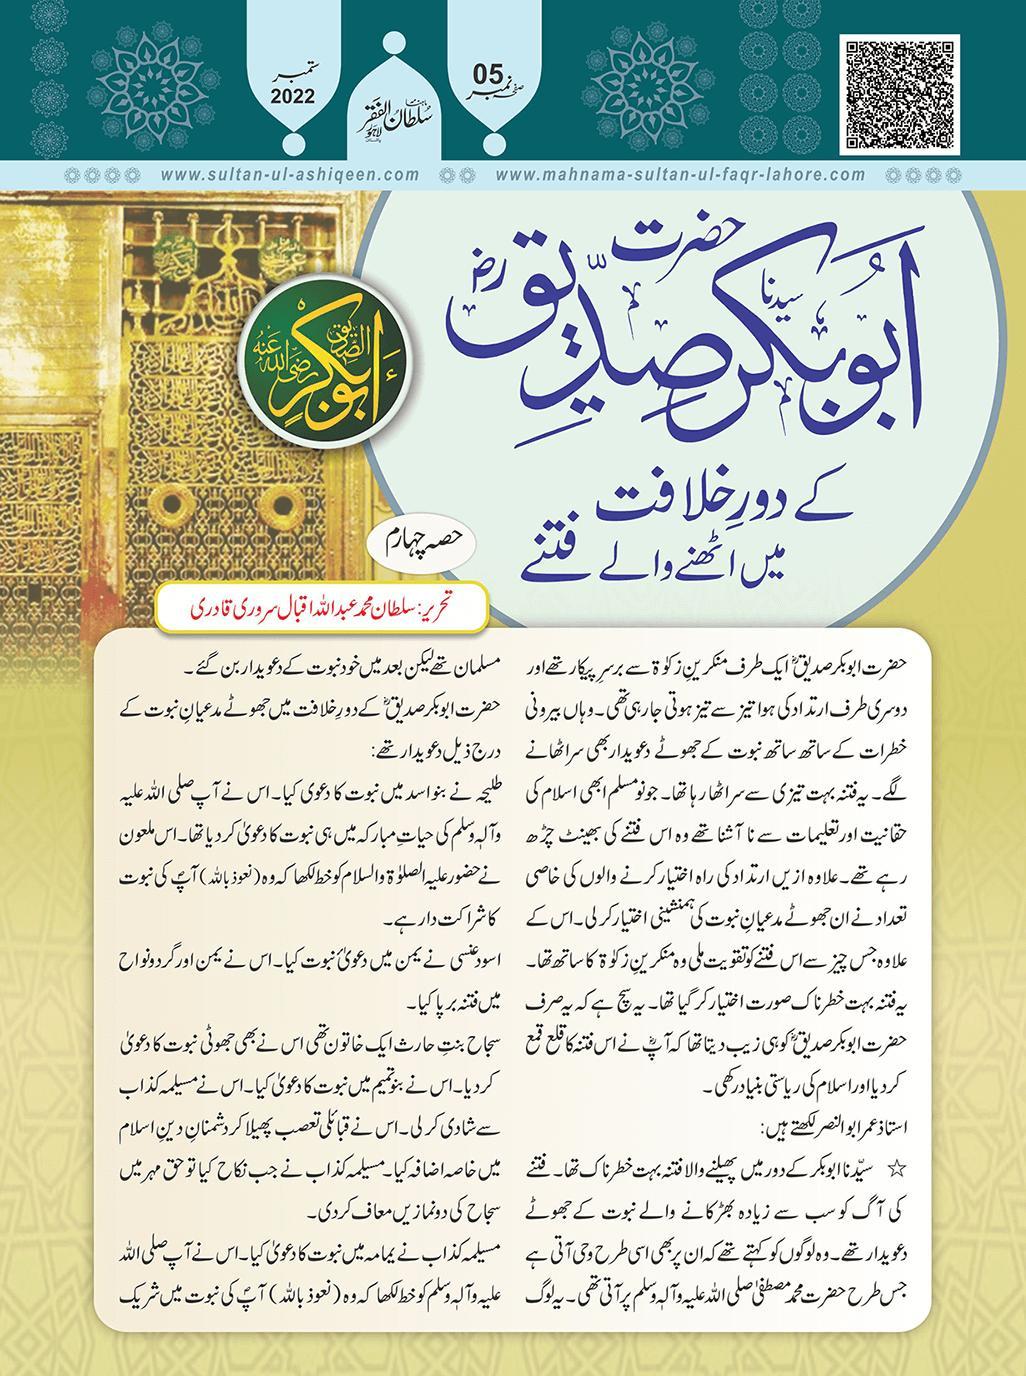 ستمبر
2022
ماہنامہ
سلطان الفقر
لاہور
پاکستان
صفحہ نمبر 05
www.sultan-ul-ashiqeen.com
www.mahnama-sultan-ul-faqr-lahore.com
حضرت
سیدنا
ابوبکر صدیق رضؓ
کے دورِ خلافت
میں اٹھنے والے فتنے
ابوبکر الصدیق رضی اللہ عنہ
حصہ چہارم
تحریر: سلطان محمد عبداللہ اقبال سروری قادری
حضرت ابوبکر صدیقؓ ایک طرف منکرینِ زکوٰۃ سے برسرِ پیکار تھے اور
دوسری طرف ارتداد کی ہوا تیز سے تیز ہوتی جا رہی تھی۔ وہاں بیرونی
خطرات کے ساتھ ساتھ نبوت کے جھوٹے دعویدار بھی سر اٹھانے
لگے۔ یہ فتنہ بہت تیزی سے سر اٹھا رہا تھا۔ جو نو مسلم ابھی اسلام کی
حقانیت اور تعلیمات سے نا آشنا تھے وہ اس فتنے کی بھینٹ چڑھ
رہے تھے۔ علاوہ ازیں ارتداد کی راہ اختیار کرنے والوں کی خاصی
تعداد نے ان جھوٹے مدعیانِ نبوت کی ہمنشینی اختیار کر لی۔ اس کے
علاوہ جس چیز سے اس فتنے کو تقویت ملی وہ منکرینِ زکوٰۃ کا ساتھ تھا۔
یہ فتنہ بہت خطرناک صورت اختیار کر گیا تھا۔ یہ سچ ہے کہ یہ صرف
حضرت ابوبکر صدیقؓ کو ہی زیب دیتا تھا کہ آپؓ نے اس فتنہ کا قلع قمع
کر دیا اور اسلام کی ریاستی بنیاد رکھی۔
استاذ عمر ابو النصر لکھتے ہیں:
☆ سیّدنا ابوبکر کے دور میں پھیلنے والا فتنہ بہت خطرناک تھا۔ فتنے
کی آگ کو سب سے زیادہ بھڑکانے والے نبوت کے جھوٹے
دعویدار تھے۔ وہ لوگوں کو کہتے تھے کہ ان پر بھی اسی طرح وحی آتی ہے
جس طرح حضرت محمد مصطفیٰ صلی اللہ علیہ وآلہٖ وسلم پر آتی تھی۔ یہ لوگ
مسلمان تھے لیکن بعد میں خود نبوت کے دعویدار بن گئے۔
حضرت ابوبکر صدیقؓ کے دورِ خلافت میں جھوٹے مدعیانِ نبوت کے
درج ذیل دعویدار تھے:
طلیحہ نے بنو اسد میں نبوت کا دعویٰ کیا۔ اس نے آپ صلی اللہ علیہ
وآلہٖ وسلم کی حیاتِ مبارکہ میں ہی نبوت کا دعویٰ کر دیا تھا۔ اس ملعون
نے حضور علیہ الصلوٰۃ والسلام کو خط لکھا کہ وہ (نعوذ باللہ) آپؐ کی نبوت
کا شراکت دار ہے۔
اسود عنسی نے یمن میں دعویٰ نبوت کیا۔ اس نے یمن اور گرد و نواح
میں فتنہ برپا کیا۔
سجاح بنتِ حارث ایک خاتون تھی اس نے بھی جھوٹی نبوت کا دعویٰ
کر دیا۔ اس نے بنو تمیم میں نبوت کا دعویٰ کیا۔ اس نے مسیلمہ کذاب
سے شادی کر لی۔ اس نے قبائلی تعصب پھیلا کر دشمنانِ دینِ اسلام
میں خاصہ اضافہ کیا۔ مسیلمہ کذاب نے جب نکاح کیا تو حق مہر میں
سجاح کی دو نمازیں معاف کر دی۔
مسیلمہ کذاب نے یمامہ میں نبوت کا دعویٰ کیا۔ اس نے آپ صلی اللہ
علیہ وآلہٖ وسلم کو خط لکھا کہ وہ (نعوذ باللہ) آپؐ کی نبوت میں شریک